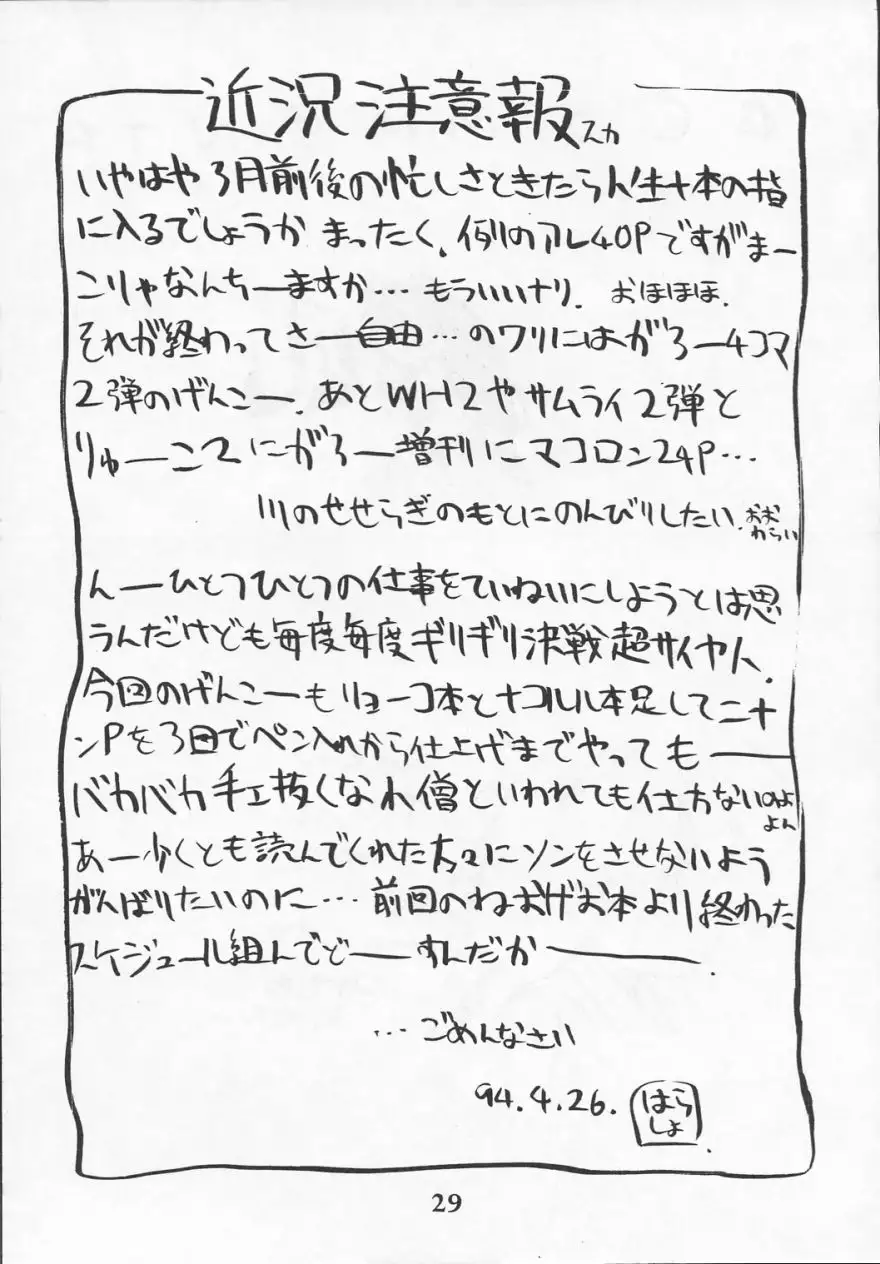 近況注意報スカ
いやはや3月前後の忙しさときたら人生十本の指
に入るでしょうか まったく、例のアレ40Pですがまー
こりゃなんちーますか… もういいナリ. おほほほ.
それが終わってさー自由…のワリにはがろー4コマ
2弾のげんこー. あとWH2やサムライ2弾と
りゅーこ2にがろー増刊にマコロン24P…
川のせせらぎのもとにのんびりしたい.おお
わらい
んーひとつひとつの仕事をていねいにしようとは思
うんだけども毎度毎度ギリギリ決戦超サイヤ人.
今回のげんこーもリョーコ本とナコルル本足して二十
ンPを3日でペン入れから仕上げまでやってもー
バカバカ手ェ抜くなれ僧といわれても仕方ないのよ
よん
あー少くとも読んでくれた方々にソンをさせないよう
がんばりたいのに…前回のねおげお本より終わった
スケジュール組んでどーすんだかー.
…ごめんなさい
94.4.26. はら
しょ
29